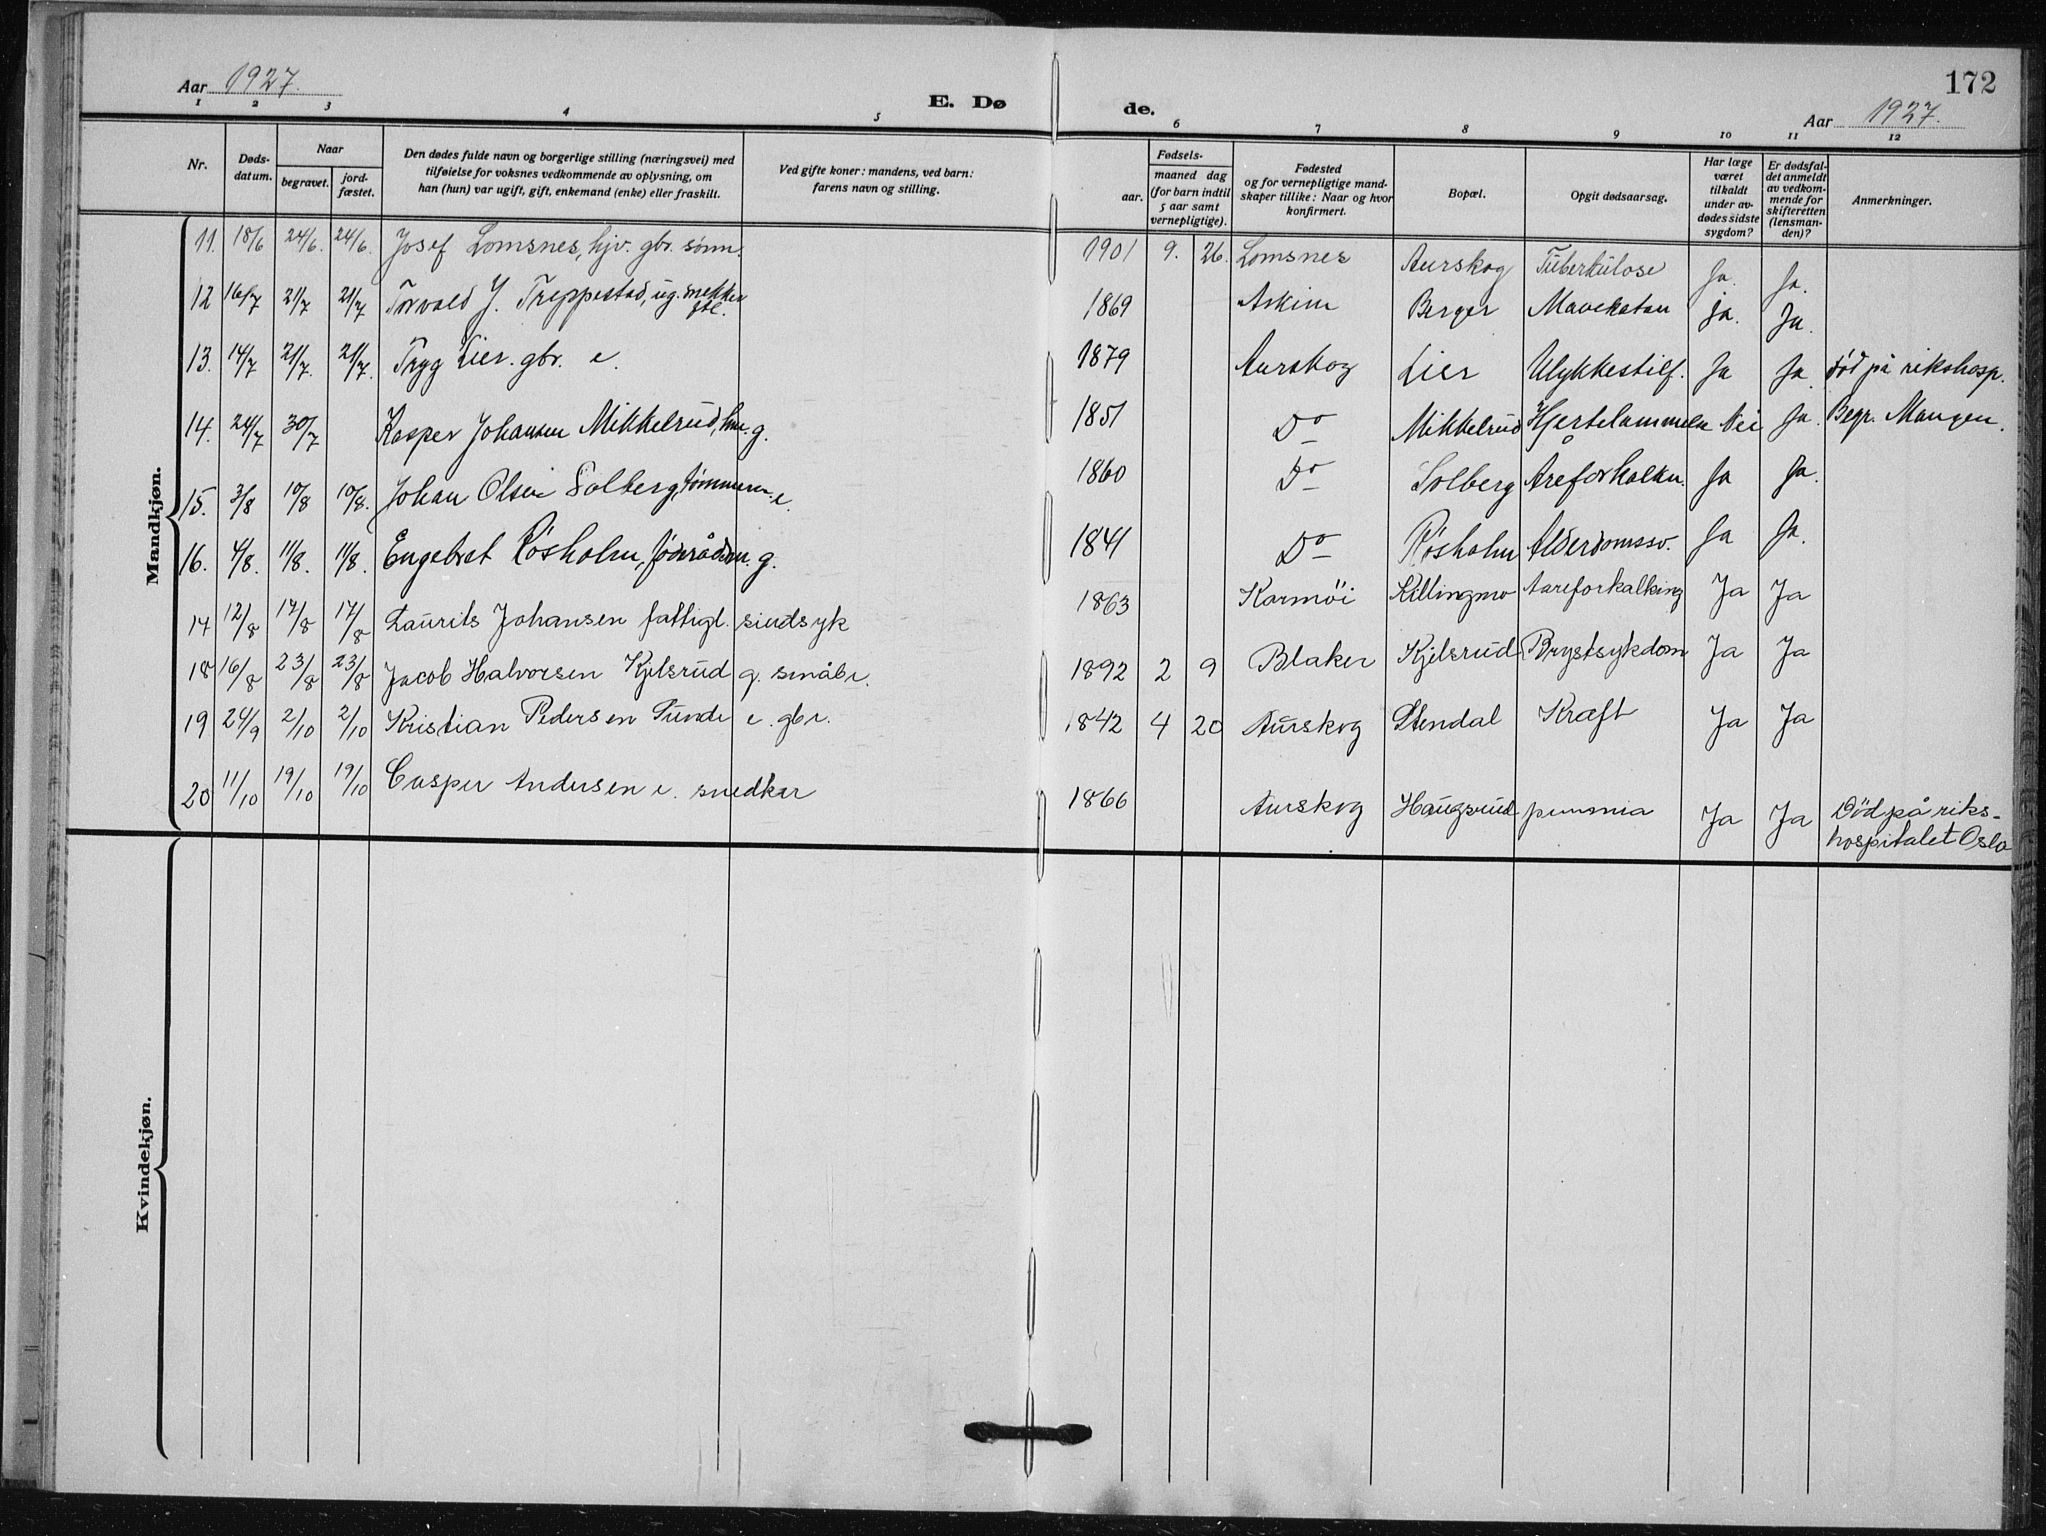 Aar 1927.
E. Døde.
172
Aar 1927.
1 2 3 4 5 6 7 8 9 10 11 12
Nr.
Døds-datum.
Naar
begravet.
jord-fæstet.
Den dødes fulde navn og borgerlige stilling (næringsvei) med
tilføielse for voksnes vedkommende av oplysning, om
han (hun) var ugift, gift, enkemand (enke) eller fraskilt.
Ved gifte koner: mandens, ved barn:
farens navn og stilling.
Fødsels-
aar.
maaned dag
(for barn indtil
5 aar samt
vernepligtige).
Fødested
og for vernepligtige mand-
skaper tillike: Naar og hvor
konfirmert.
Bopæl.
Opgit dødsaarsag.
Har læge
været
tilkaldt
under av-
dødes sidste
sygdom?
Er dødsfal-
det anmeldt
av vedkom-
mende for
skifteretten
(lensman-
den)?
Anmerkninger.
Mandkjøn.
11. 18/6 24/6. 24/6. Josef Lomsnes, hjv. gbr. sønn. 1901 9. 26. Lomsnes Aurskog Tuberkulose Ja. Ja.
12 16/7 21/7 21/7 Torvald J. Treppestad, ug. 1869 Askim Berger Mavekatar ja. Ja.
13. 14/7 21/7. 21/7. Tryg Lier. gbr. e. 1879 Aurskog Lier Ulykkestilf. Ja Ja. Død på rikshosp.
14. 24/7 30/7 Kasper Johansen Mikkelrud, g. 1851 Do Mikkelrud Hjertelammelse Nei Ja. Begr. Mangen.
15. 3/8 10/8 10/8. Johan Olsen Solberg, tømmerm. e. 1860 Do Solberg Åreforkalkn. Ja Ja.
16. 4/8. 11/8. 11/8. Engebret Røsholm, føderådsm. g. 1841 Do Røsholm Alderdomssv. Ja Ja.
17 12/8 17/8 17/8 Laurits Johansen fattigl. sindsyk 1863 Karmöi Killingmo Aareforkalking Ja Ja
18 16/8 23/8 23/8 Jacob Halvorsen Kjelsrud g. småbr. 1892 2 9 Blaker Kjelsrud Brystsykdom Ja Ja
19 24/9 2/10 2/10 Kristian Pedersen Tunde e. gbr. 1842 4 20 Aurskog Stendal Kræft Ja Ja
20 11/10 19/10 19/10 Casper Andersen e. snedker 1866 Aurskog Haugsrud Ja Ja Död på riks-
hospitalet Oslo
Kvindekjøn.